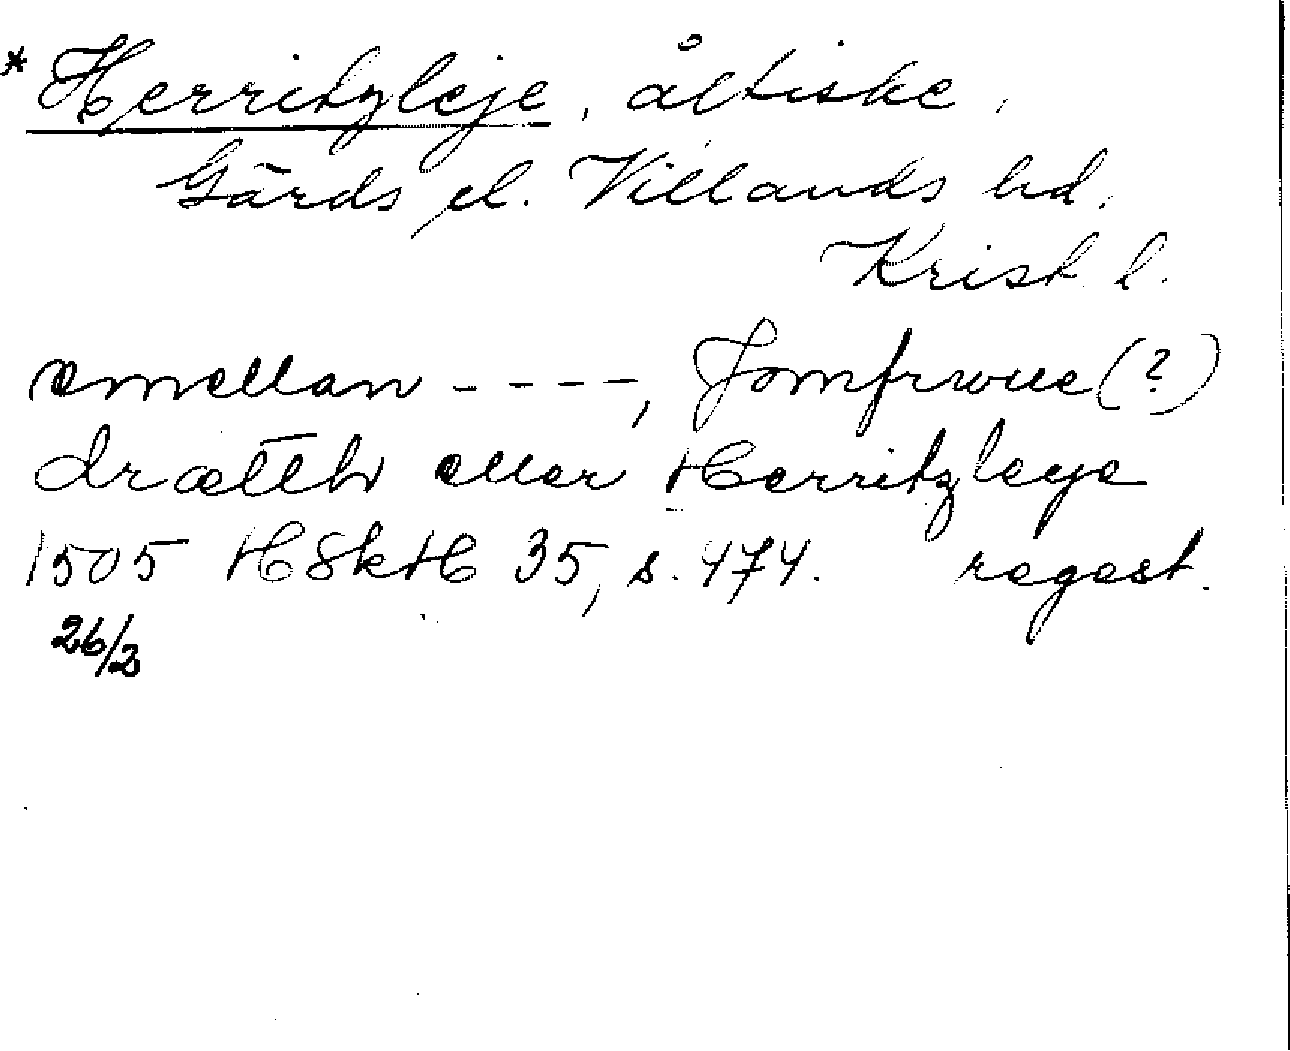 * Herritzleje, ålfiske,
Gärds el. Villands hd.
Krist. l.
emellan ----, Jomfrwue (?)
drætth eller Herritzleye
1505 HSkH 35, s. 474. regest.
26/2